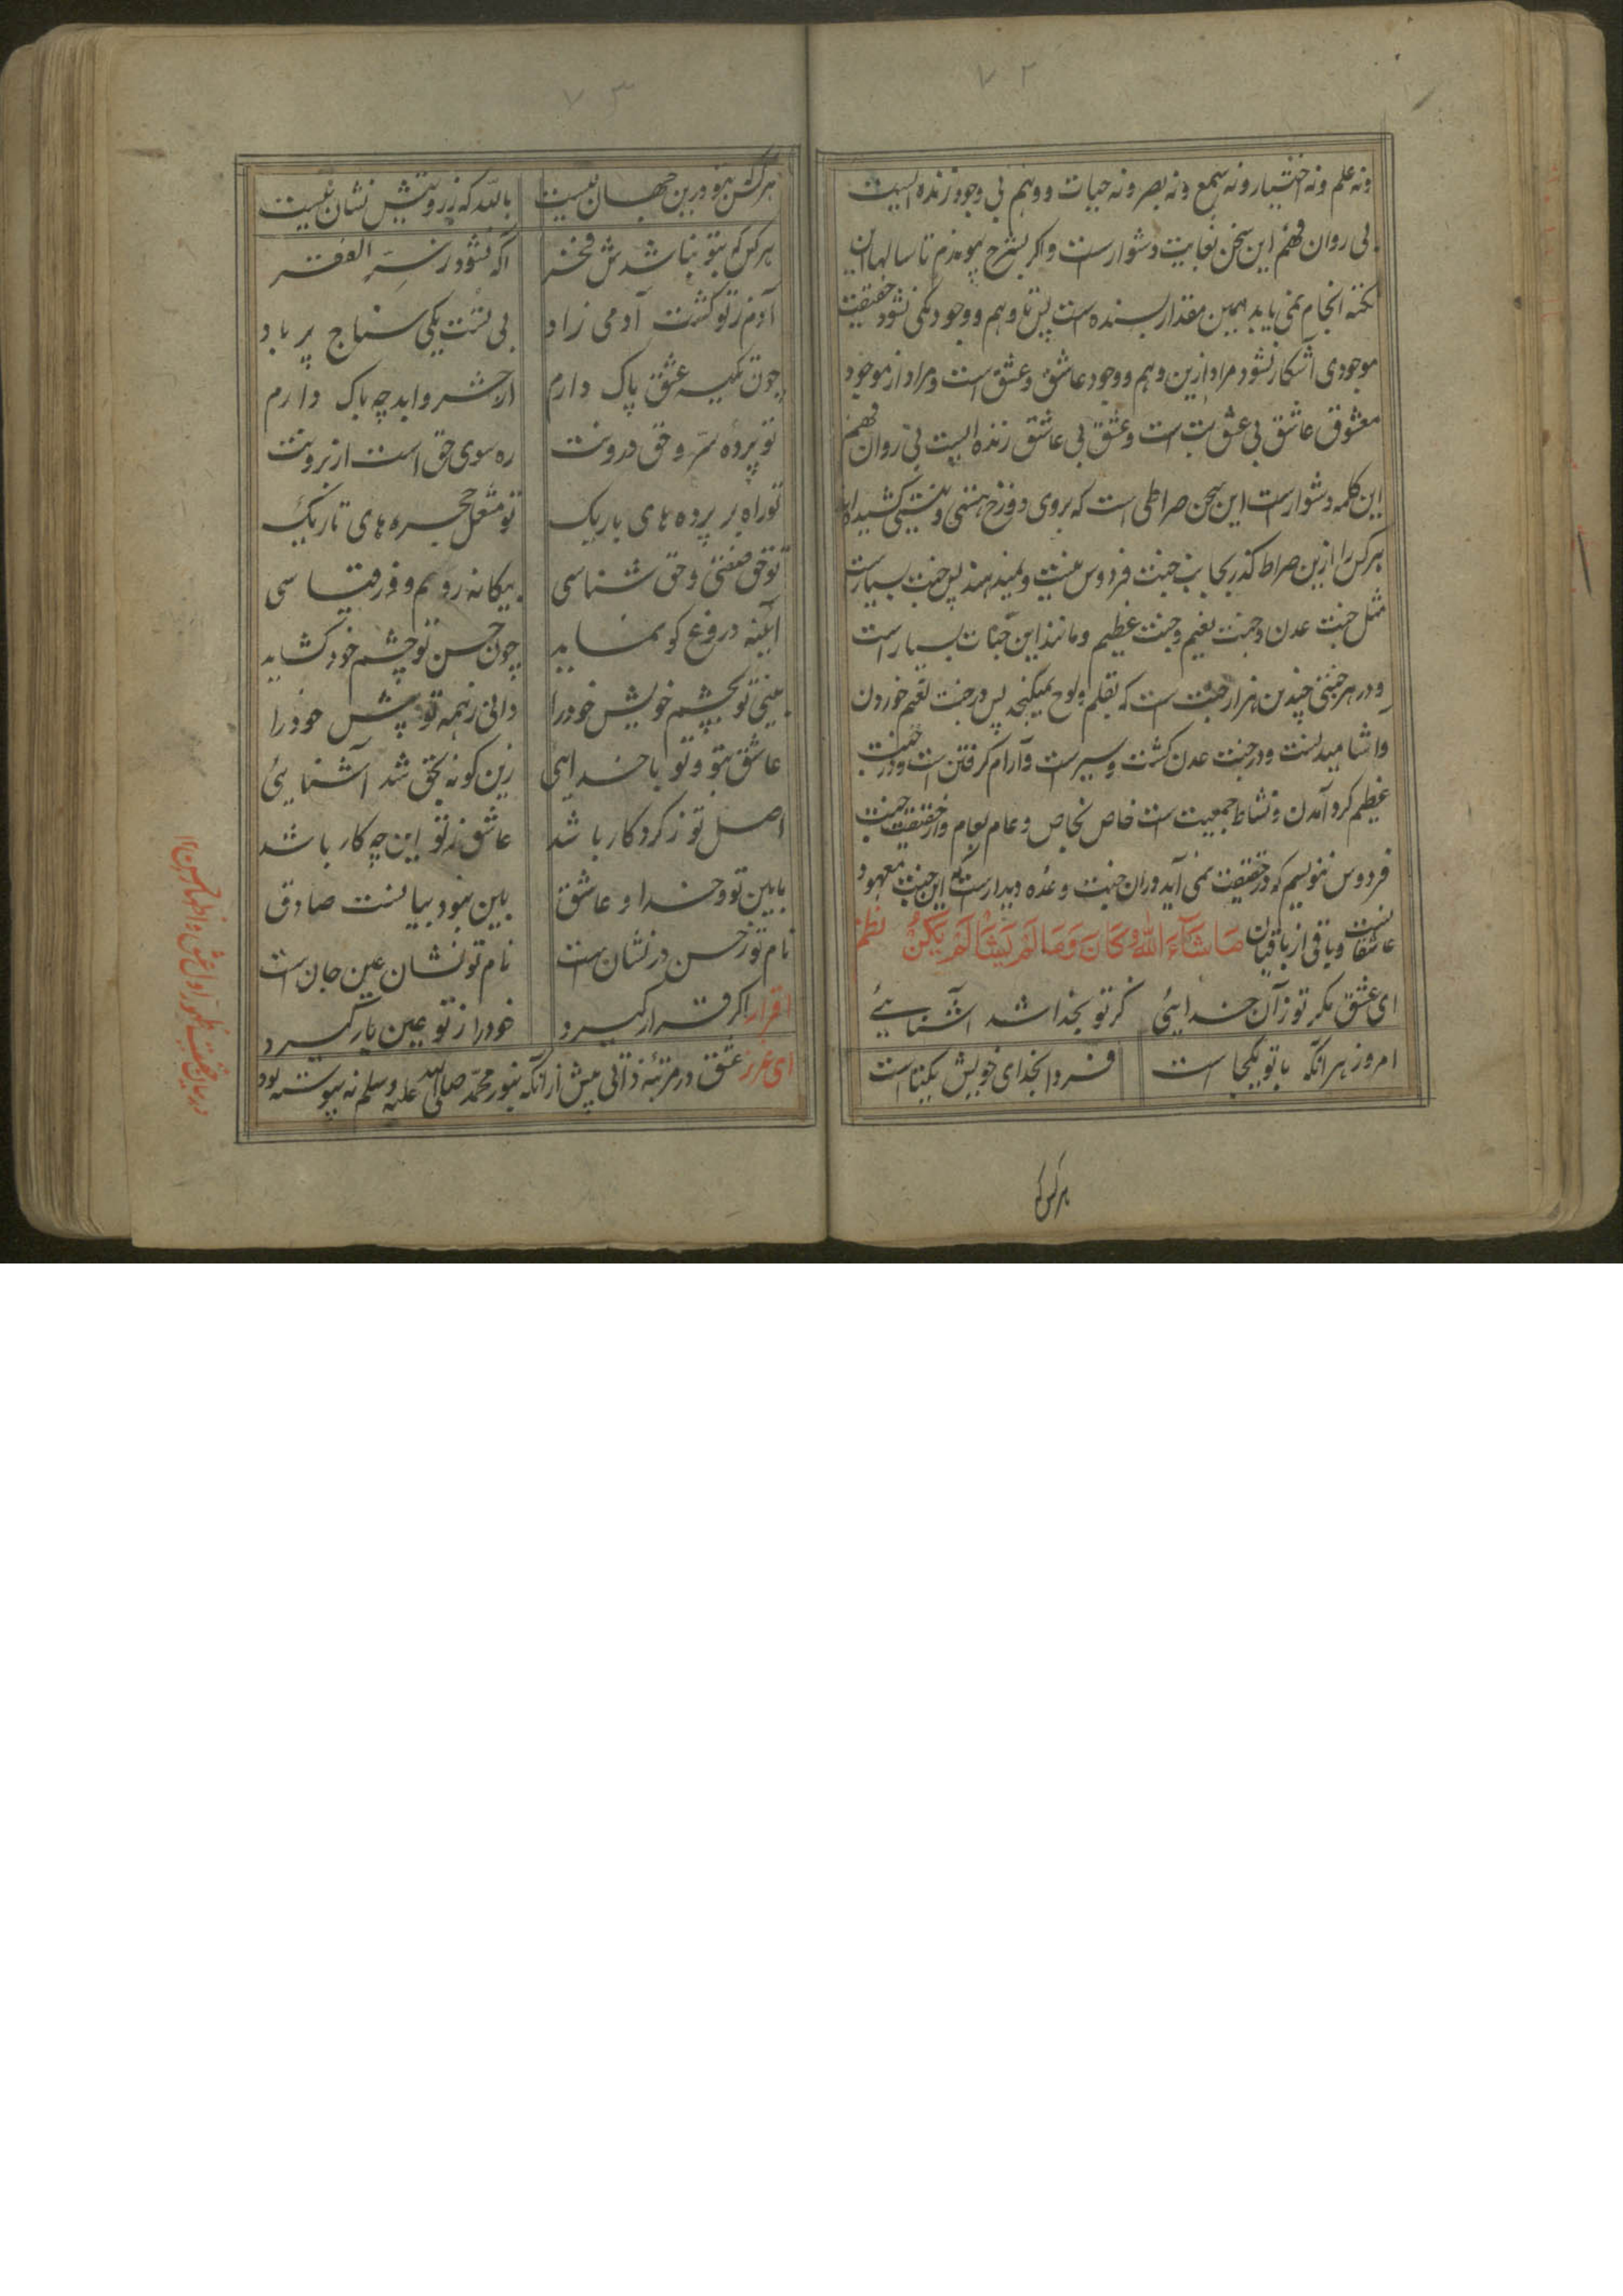 ۷۲
ونه علم ونه اختیار ونه سمع ونه بصر ونه حیات ووهم بی وجود زنده ایست
بی روان فهم این سخن بغایت دشوارست واکر بشرح پیوندم تا سالها این
نکته انجام نمی یابد همین مقدار بسنده است پس تا وهم ووجود یکی نشود حقیقت
موجودی آشکار نشود مراد ازین وهم ووجود عاشق وعشق است ومراد از موجود
معشوق عاشق بی عشق بت است وعشق بی عاشق زنده ایست بی روان فهم
این کلمه دشوارست این سخن صراطی است که بروی دوزخ هستی ونیستی کشیده اند
هرکس را ازین صراط کذر بجانب جنت فردوس نیست ونمیدهند پس جنت بسیارست
مثل جنت عدن وجنت نعیم وجنت عظیم ومانند این جنات بسیار است
ودر هر جنتی چندین هزار جنت است که بقلم ولوح نمیکنجد پس در جنت نعیم خوردن
واشامیدنست ودر جنت عدن کشت وسیرست وآرام کرفتن است ودر جنت
عظیم کرد آمدن ونشاط جمعیت است خاص بخاص وعام بعام واز حقیقت جنت
فردوس ننویسم که در حقیقت نمی آید ودران جنت وعده دیدارست این جنت معهود
عاشقانست وباقی از باقیان مَا شَآءَ اللّٰهُ كَانَ وَمَا لَمْ يَشَأْ لَمْ يَكُنْ نظم
ای عشق مکر تو زآن خدایئی کز تو بخدا شد آشنایئی
امروز هر آنکه با تو یکجا است فردا بخدای خویش یکتا است
هرکس که
۷۳
هرکس که بتو درین جهان نیست بالله که ز رویتش نشان نیست
هرکس که بتو نباشدش فخر آکه نشود ز سرّ الفقر
آدم ز تو کشت آدمی زاد
چون تکیه عشق پاک دارم از حشر وابد چه باک دارم
تو پرده سرّ وحق درونت ره سوی حق است از برونت
تو راه بر پرده های باریک تو مشعل حجره های تاریک
تو حق صفتی وحق شناسی
آیینه دروغ کو نماید چون حسن تو چشم خود کشاید
بینی تو بچشم خویش خود را دانی ز همه تو پیش خود را
عاشق بتو وتو با خدایی زین کونه بحق شد آشنایئ
اصل تو ز کردکار باشد عاشق ز تو این چه کار باشد
مابین تو وخدا وعاشق بین نبود بیانست صادق
نام تو ز حسن در نشان است نام تو نشان عین جان است
اقرار اکر قرار کیرد خود را ز تو عین یار کیرد
ای عزیز عشق در مرتبهٔ ذاتی پیش از آنکه بنور محمّد صلی الله علیه وسلم نه پیوسته بود
در بیان حقیقت ظهور اول عشق